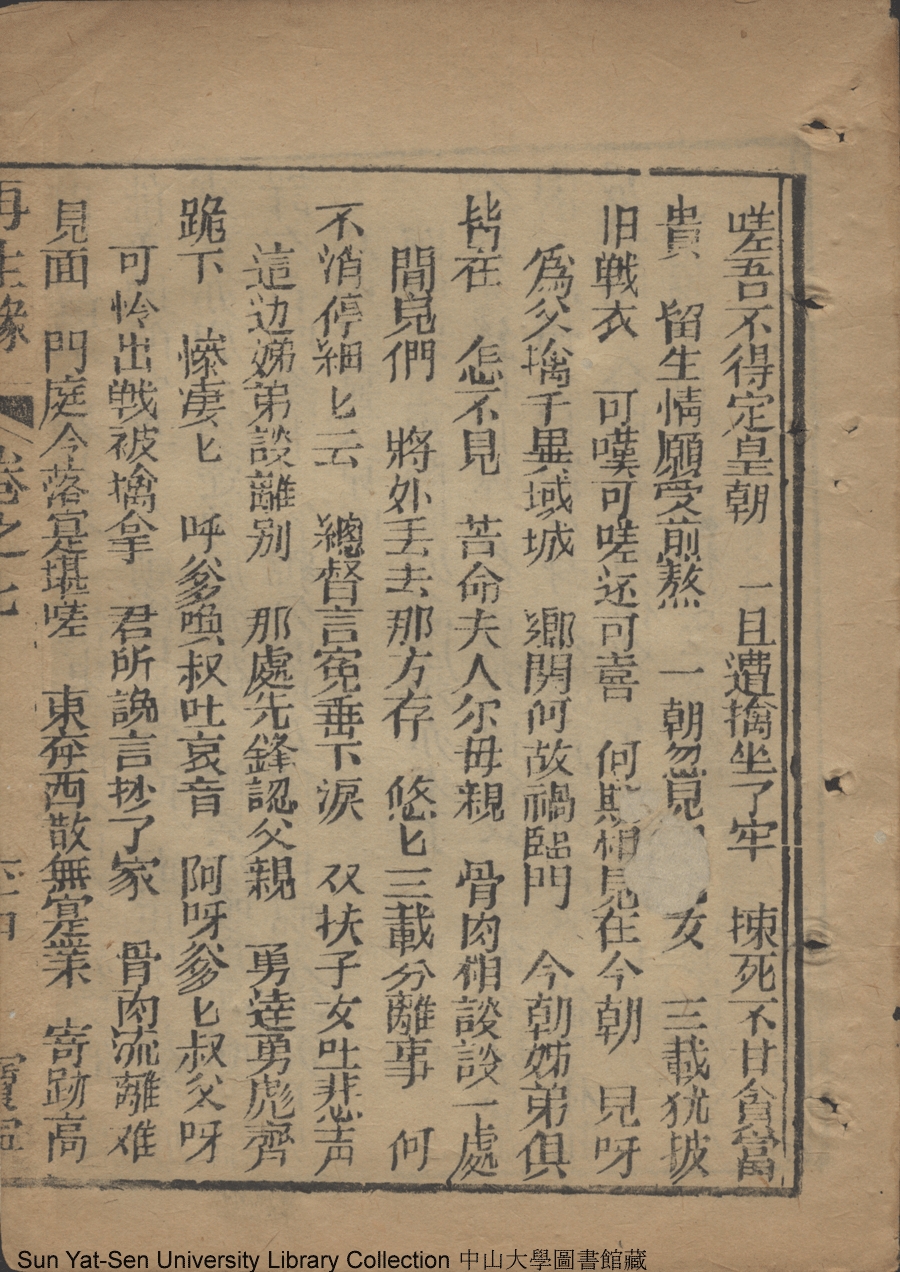 嗟吾不得定皇朝 一旦遭擒坐了牢 拚死不甘貪富
貴 留生情願受煎熬 一朝忽見 女 三載犹披
旧戰衣 可嘆可嗟还可喜 何期相見在今朝 見呀
為父擒于異域城 鄉関何故禍臨門 今朝姊弟俱
皆在 怎不見 苦命夫人尔毋親 骨肉相談談一處
間見們 將外丢去那方存 悠匕三載分離事 何
不消停細匕云 總督言完垂下淚 双扶子女吐悲声
這边娣弟談離别 那處先鋒認父親 勇達勇彪齊
跪下 慘凄匕 呼爹喚叔吐哀音 阿呀爹匕叔父呀
可怜出戰被擒拿 君所讒言抄了家 骨肉流離难
見面 門庭令落寔堪嗟 東奔西散無寔業 寄跡高
再生緣 卷之七
Sun Yat-Sen University Library Collection 中山大學圖書館藏